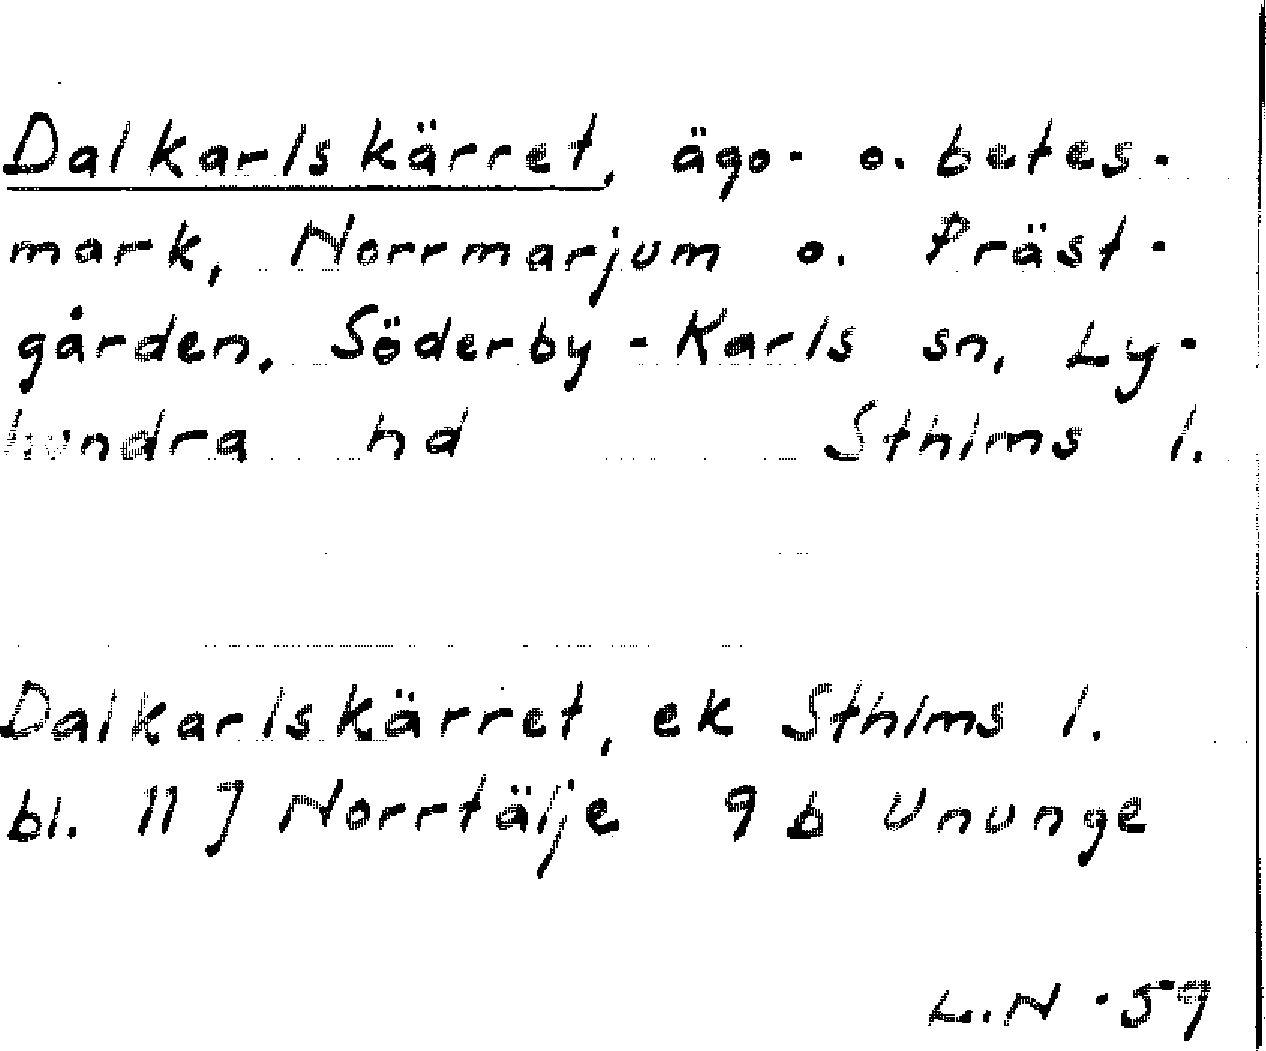 Dalkarlskärret, ägo- o. betes-
mark, Norrmarjum o. Präst-
gården, Söderby-Karls sn, Ly-
hundra hd Sthlms l.
Dalkarlskärret, ek Sthlms l.
bl. 11 J Norrtälje 9 b Ununge
L.N -59